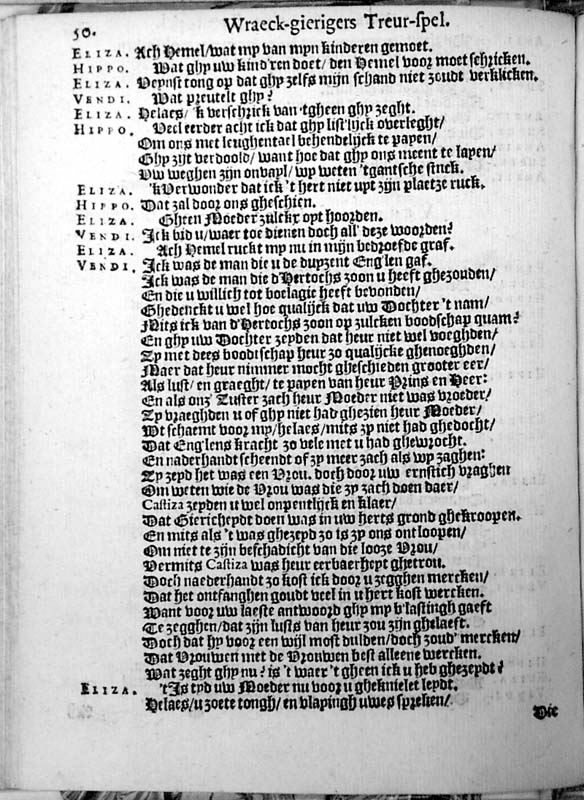 50.
Wraeck-gierigers Treur-spel.
ELIZA. Ach Hemel/wat my van myn kinderen gemoet.
HIPPO. Wat ghy uw kind'ren doet/ den Hemel voor moet schricken.
ELIZA. Peynst tong op dat ghy zelfs mijn schand niet zoudt verklicken.
VENDI. Wat preutelt ghy?
ELIZA. Helaes/ 'k verschrick van 'tgheen ghy zeght.
HIPPO. Veel eerder acht ick dat ghy list'lijck overleght/
Om ons met leughentael behendelijck te papen/
Ghy zyt verdoold/ want hoe dat ghy ons meent te lapen/
Uw weghen zijn onvayl/ wy weten 'tgantsche stuck.
ELIZA. 'kVerwonder dat ick 't hert niet uyt zijn plaetze ruck.
HIPPO. Dat zal door ons gheschien.
ELIZA. Gheen Moeder zulckx oyt hoorden.
VENDI. Ick bid u/waer toe dienen doch all' deze woorden?
ELIZA. Ach Hemel ruckt my nu in mijn bedroefde graf.
VENDI. Ick was de man die u de duyzent Eng'len gaf.
Ick was de man die d'Hertochs zoon u heeft ghezonden/
En die u willich tot boelagie heeft bevonden/
Ghedenckt u wel hoe qualijck dat uw Dochter 't nam/
Mits ick van d'Hertochs zoon op zulcken boodschap quam?
En ghy uw Dochter zeyden dat heur niet wel voeghden/
Zy met dees boodtschap heur zo qualijcke ghenoeghden/
Maer dat heur nimmer mocht gheschieden grooter eer/
Als lust/ en graeght/ te payen van heur Prins en Heer:
En als onz' Zuster zach heur Moeder niet was vroeder/
Zy vraeghden u of ghy niet had ghezien heur Moeder/
Wt schaemt voor my/helaes/mits zy niet had ghedocht/
Dat Eng'lens kracht zo vele met u had ghewrocht.
En naderhandt scheendt of zy meer zach als wy zaghen:
Zy zeyd het was een Vrou. doch door uw ernstich vraghen
Om weten wie de Vrou was die zy zach doen daer/
Castiza zeyden u wel opentlijck en klaer/
Dat Giericheydt doen was in uw herts grond ghekroopen.
En mits als 't was ghezeyd zo is zy ons ontloopen/
Om niet te zijn beschadicht van die looze Vrou/
Vermits Castiza was heur eerbaerheyt ghetrou.
Doch naederhandt zo kost ick door u zegghen mercken/
Dat het ontfanghen goudt veel in u hert kost wercken.
Want voor uw laeste antwoord ghy my b'lastingh gaeft
Te zegghen/dat zijn lusts van heur zou zijn ghelaeft.
Doch dat hy voor een wijl most dulden/doch zoud' mercken/
Dat Vrouwen met de Vrouwen best alleene wercken.
Wat zeght ghy nu? is 't waer 't gheen ick u heb ghezeydt?
ELIZA. 't Is tyd uw Moeder nu voor u gheknielet leydt.
Helaes/u zoete tongh/ en vlapingh uwes spreken/
Die